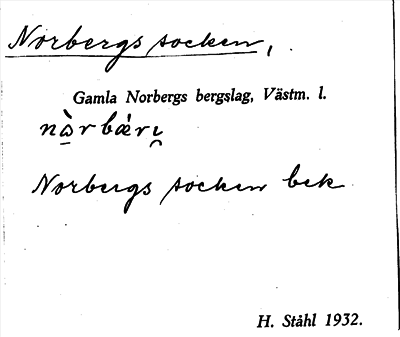 Norbergs socken,
Gamla Norbergs bergslag, Västm. l.
nὰ̱rbǽrι̯
Norbergs socken bek
H. Ståhl 1932.